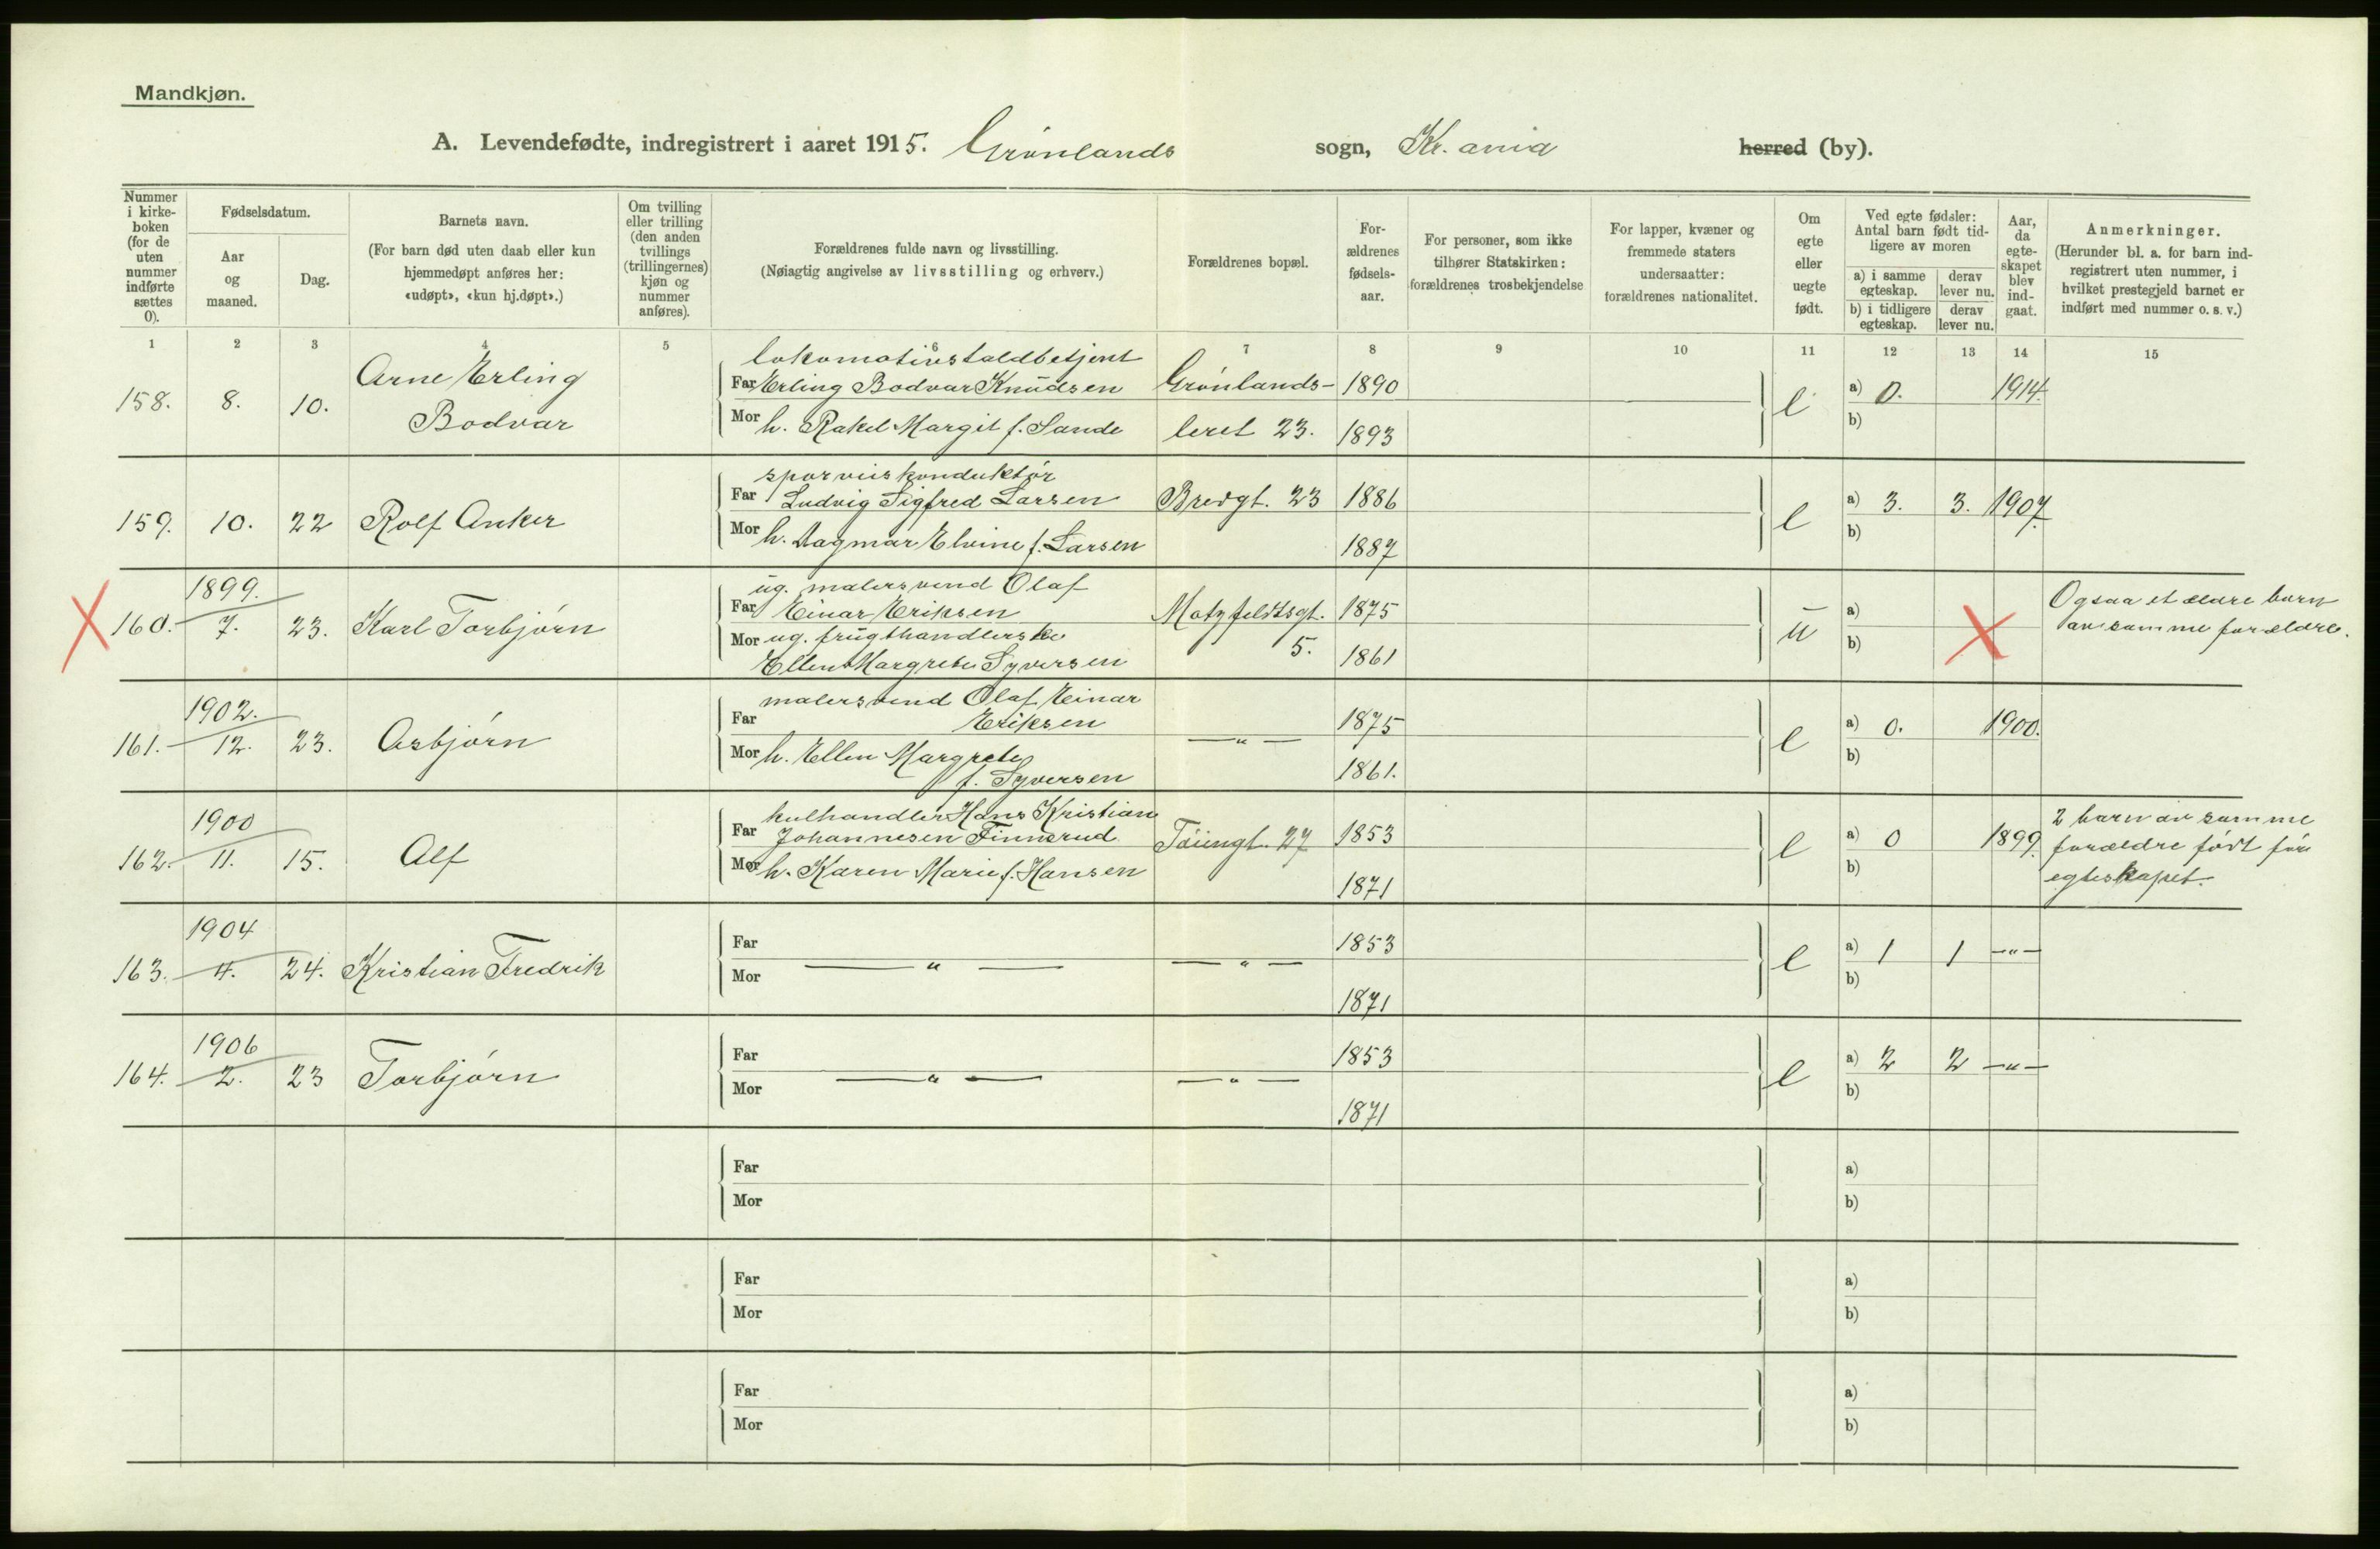 Mandkjøn.
A. Levendefødte, indregistrert i aaret 1915. Grønlands sogn, Kr.ania herred (by).
Nummer i kirke-boken (for de uten nummer indførte sættes 0).
Fødselsdatum.
Aar og maaned.
Dag.
Barnets navn.
(For barn død uten daab eller kun hjemmedøpt anføres her: «udøpt», «kun hj.døpt».)
Om tvilling eller trilling (den anden tvillings (trillingernes) kjøn og nummer anføres).
Forældrenes fulde navn og livsstilling.
(Nøiagtig angivelse av livsstilling og erhverv.)
Forældrenes bopæl.
For-ældrenes fødsels-aar.
For personer, som ikke tilhører Statskirken: forældrenes trosbekjendelse
For lapper, kvæner og fremmede staters undersaatter: forældrenes nationalitet.
Om egte eller uegte født.
Ved egte fødsler: Antal barn født tid-ligere av moren
a) i samme egteskap.
derav lever nu.
b) i tidligere egteskap.
derav lever nu.
Aar, da egte-skapet blev ind-gaat.
Anmerkninger.
(Herunder bl. a. for barn ind-registrert uten nummer, i hvilket prestegjeld barnet er indført med nummer o. s. v.)
1 2 3 4 5 6 7 8 9 10 11 12 13 14 15
lokomotivstaldbetjent
158. 8. 10. Arne Erling Far Erling Bodvar Knudsen Grønlands- 1890 e a) 0. 1914.
Bodvar Mor h. Rakel Margit f. Sande leret 23. 1893 b)
sporveiskonduktør
159. 10. 22 Rolf Anker Far Ludvig Sigfred Larsen Bredgt. 23 1886 e a) 3. 3. 1907.
Mor h. Dagmar Elvine f. Larsen 1887 b)
1899. ug. malersvend Olaf Ogsaa et ældre barn
X 160. 7. 23. Karl Torbjørn Far Einar Eriksen Motzfeldtsgt. 1875 u a) X av samme forældre.
Mor ug. frugthandlerske 5. b)
Ellen Margrete Syversen 1861
1902. malersvend Olaf Einar
161. 12. 23. Asbjørn Far Eriksen — " — 1875 e a) 0. 1900.
Mor h. Ellen Margrete b)
f. Syversen 1861.
1900 kulhandler Hans Kristian 2 barn av samme
162. 11. 15. Alf Far Johannesen Finnerud Tøiengt. 27 1853 e a) 0 1899. forældre født før
Mor h. Karen Marie f. Hansen 1871 b) egteskapet.
1904
163. 4. 24. Kristian Fredrik Far — " — — " — 1853 e a) 1 1 — " —
Mor 1871 b)
1906
164. 2. 23 Torbjørn Far — " — — " — 1853 e a) 2 2 — " —
Mor 1871 b)
Far a)
Mor b)
Far a)
Mor b)
Far a)
Mor b)